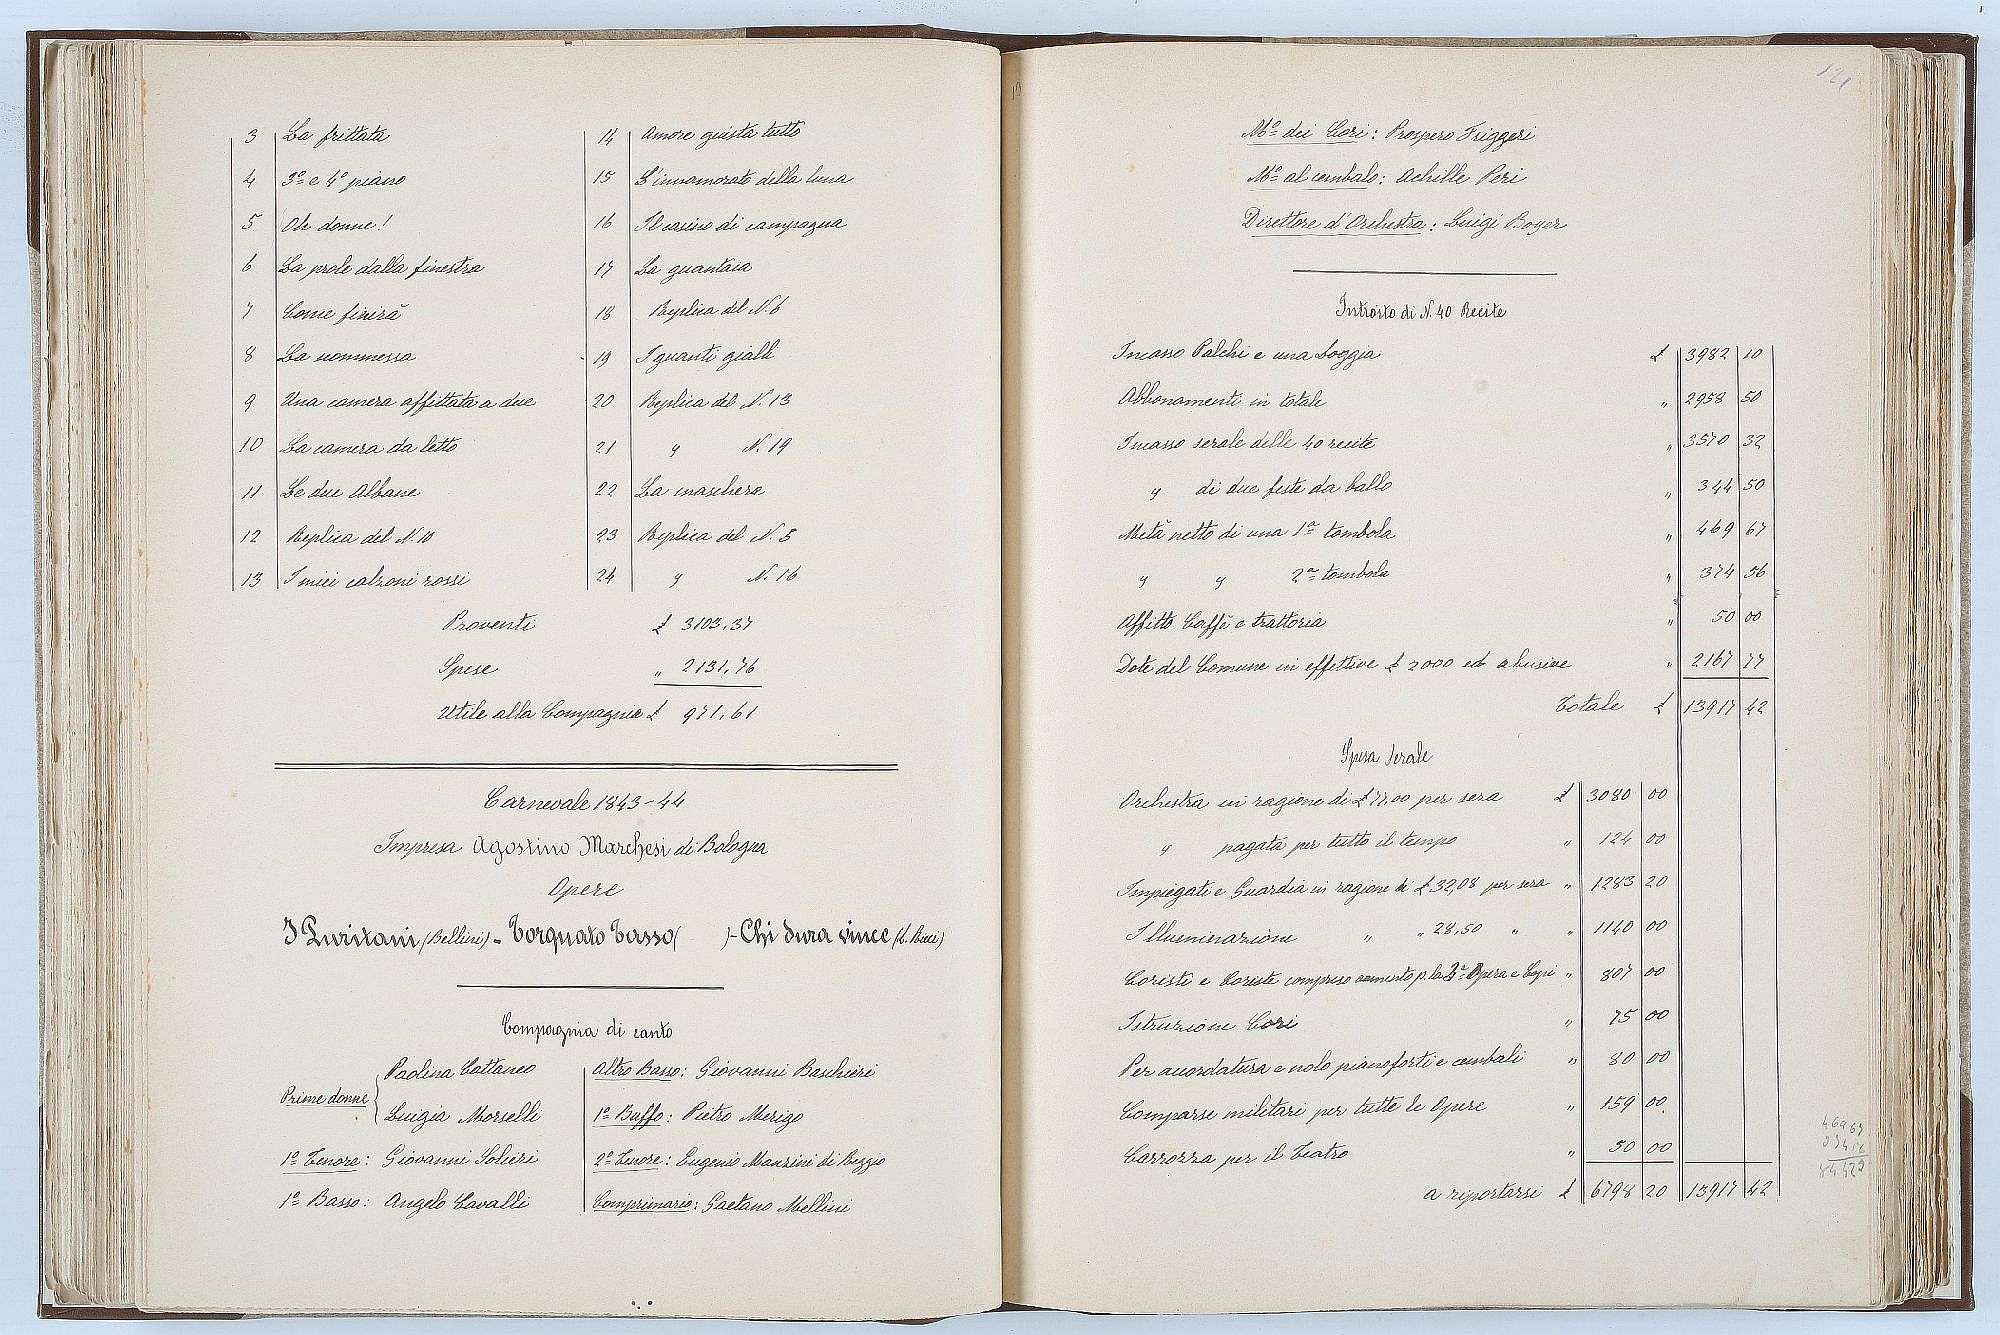 3 La frittata
4 3º e 4º piano
5 Oh donne!
6 La prole dalla finestra
7 Come finirà
8 La nommessa
9 Una camera affittata a due
10 La camera da letto
11 Le due Albane
12 Replica del N. 10
13 I miei calzoni rossi
14 Amore guasta tutto
15 L'innamorato della luna
16 Il casino di campagna
17 La guantaia
18 Replica del N. 6
19 I guanti gialli
20 Replica del N. 13
21 " N. 19
22 La maschera
23 Replica del N. 5
24 " N. 16
Proventi £ 3103,37
Spese " 2131,76
Utile alla Compagnia £ 971,61
Carnevale 1843-44
Impresa Agostino Marchesi di Bologna
Opere
I Puritani (Bellini) - Torquato Tasso ( ) - Chi dura vince (L. Ricci)
Compagnia di canto
Prime donne { Paolina Cattaneo
Luigia Morselli
1º Tenore: Giovanni Solieri
1º Basso: Angelo Cavalli
Altro Basso: Giovanni Baschieri
1º Buffo: Pietro Merigo
2º Tenore: Eugenio Manzini di Reggio
Comprimario: Gaetano Mellini
121
Mº dei Cori: Prospero Friggeri
Mº al cembalo: Achille Peri
Direttore d'Orchestra: Luigi Boyer
Introito di N. 40 Recite
Incasso Palchi e una Loggia £ 3982 10
Abbonamenti in totale " 2958 50
Incasso serale delle 40 recite " 3570 32
" di due feste da ballo " 344 50
Metà netto di una 1ª tombola " 469 67
" " 2ª tombola " 374 56
Affitto Caffè e trattoria " 50 00
Dote del Comune in effettive £ 2000 ed abusive " 2167 77
Totale £ 13917 42
Spesa Serale
Orchestra in ragione di £ 77,00 per sera £ 3080 00
" pagata per tutto il tempo " 124 00
Impiegati e Guardia in ragione di £ 32,08 per sera " 1283 20
Illuminazione " " 28,50 " " 1140 00
Coristi e Coriste compreso aumento p. la 3ª Opera e Copi " 807 00
Istruzione Cori " 75 00
Per accordatura e nolo pianoforti e cembali " 80 00
Comparse militari per tutte le Opere " 159 00
Carrozza per il Teatro " 50 00
a riportarsi £ 6798 20 13917 42
46967
37456
84423